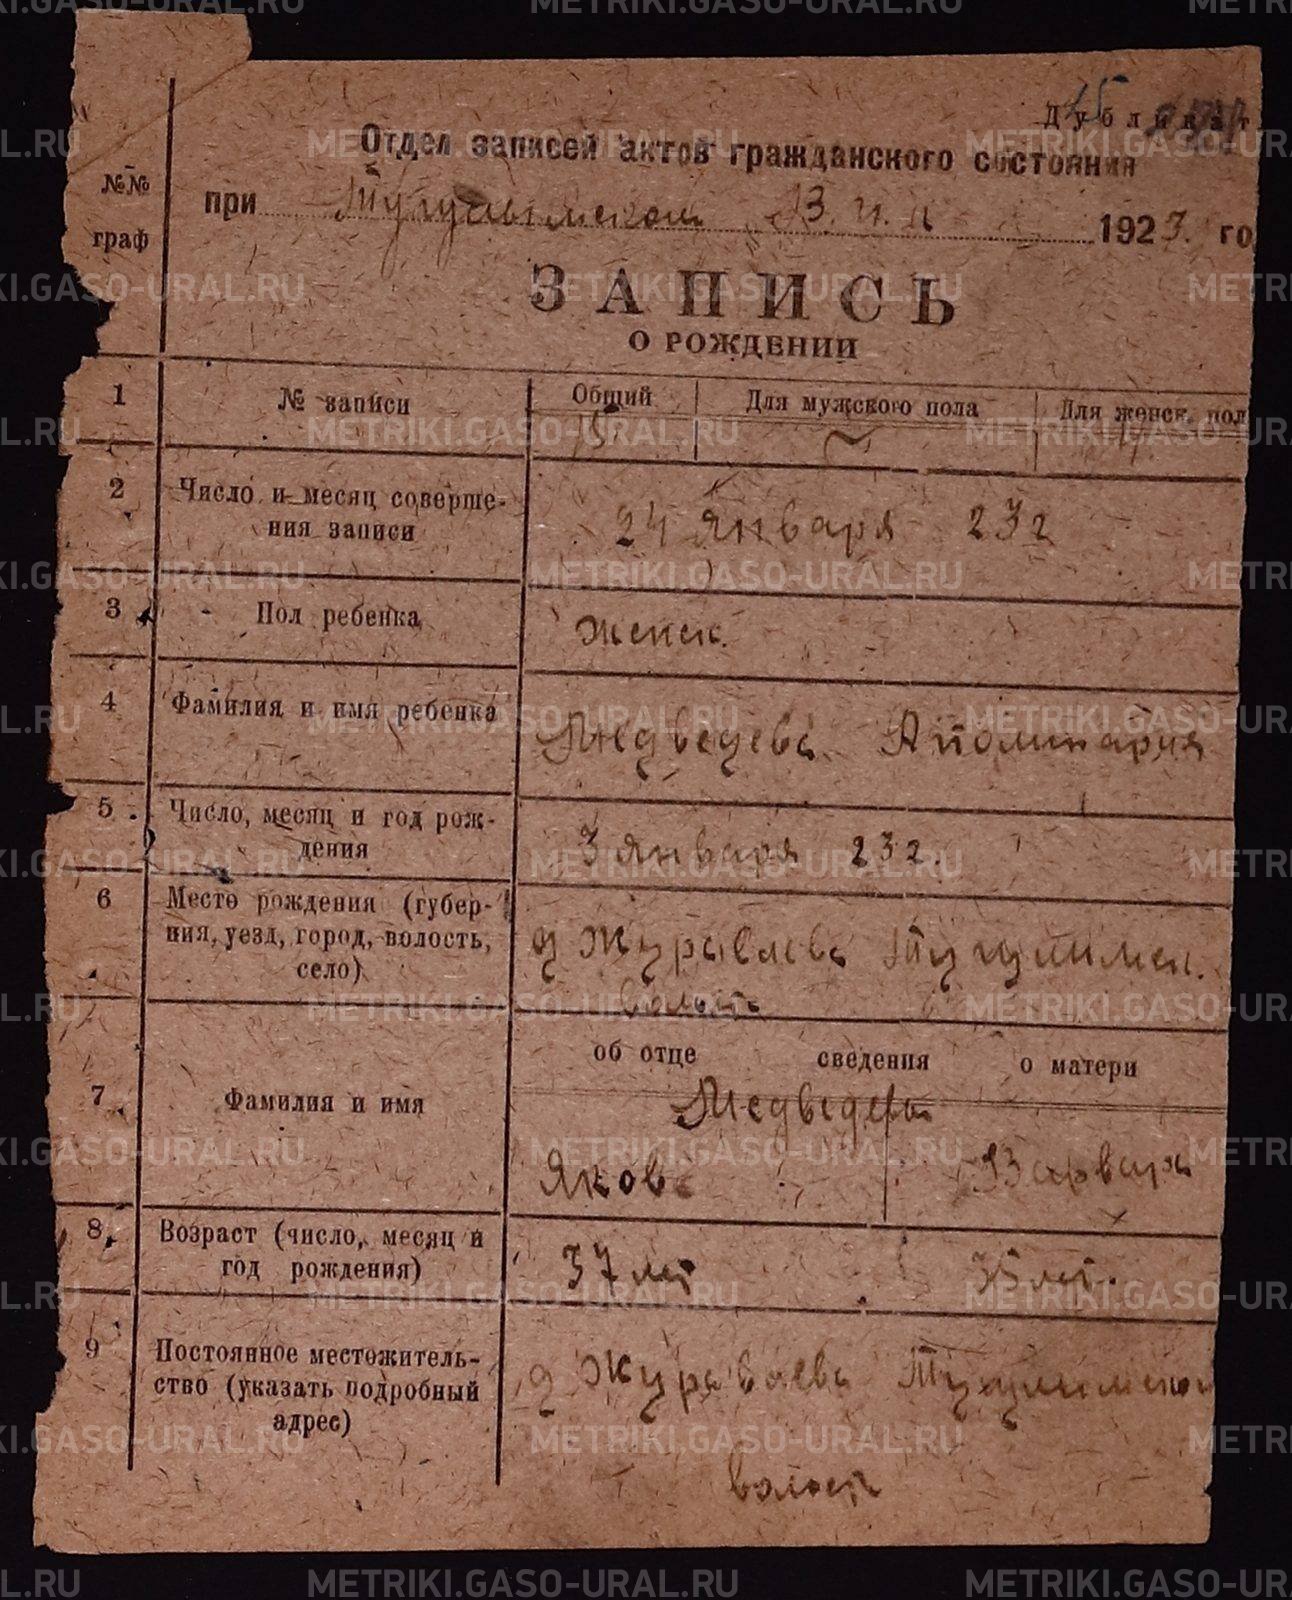 Дубликат
45
Отдел записей актов гражданского состояния
при Тугулымском В.И.К 1923. го
№№ граф
ЗАПИСЬ
О РОЖДЕНИИ
1 № записи Общий Для мужского пола Для женск. пол
15
2 Число и месяц соверше-
ния записи
24 января 23г
3 Пол ребенка женск.
4 Фамилия и имя ребенка Медведева Аполинария
5 Число, месяц и год рож-
дения
3 января 23г.
6 Место рождения (губер-
ния, уезд, город, волость,
село)
д Журавлева Тугулымск.
волость
об отце сведения о матери
7 Фамилия и имя Медведевы
Яков Варвара
8 Возраст (число, месяц и
год рождения)
37 лет 35 лет.
9 Постоянное местожитель-
ство (указать подробный
адрес)
д Журавлева Тугулымской
волост
METRIKI.GASO-URAL.RU